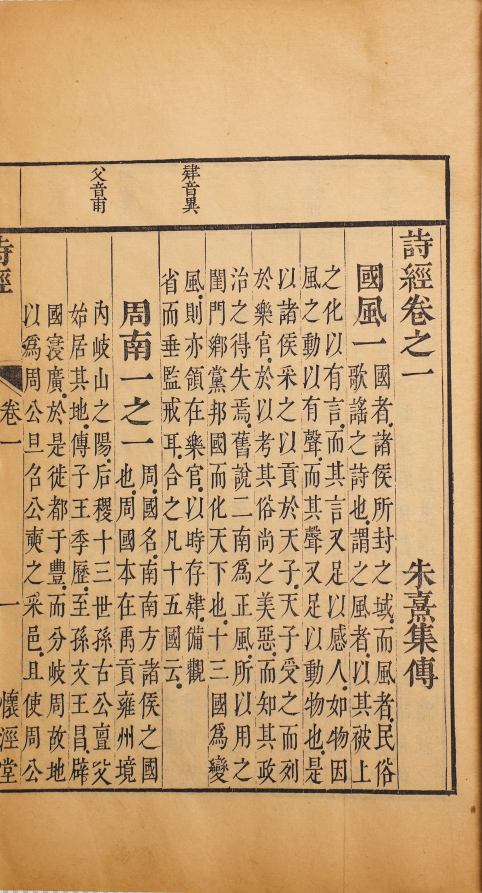 肄音異
父音甫
詩經卷之一
朱熹集傳
國風一
國者諸侯所封之域而風者民俗
歌謠之詩也謂之風者以其被上
之化以有言而其言又足以感人如物因
風之動以有聲而其聲又足以動物也是
以諸侯采之以貢於天子天子受之而列
於樂官於以考其俗尚之美惡而知其政
治之得失焉舊說二南爲正風所以用之
閨門鄉黨邦國而化天下也十三國爲變
風則亦領在樂官以時存肄備觀
省而垂監戒耳合之凡十五國云
周南一之一
周國名南南方諸侯之國
也周國本在禹貢雍州境
內岐山之陽后稷十三世孫古公亶父
始居其地傳子王季歷至孫文王昌辟
國寖廣於是徙都于豐而分岐周故地
以爲周公旦召公奭之采邑且使周公
詩經
卷一
一
懷涇堂